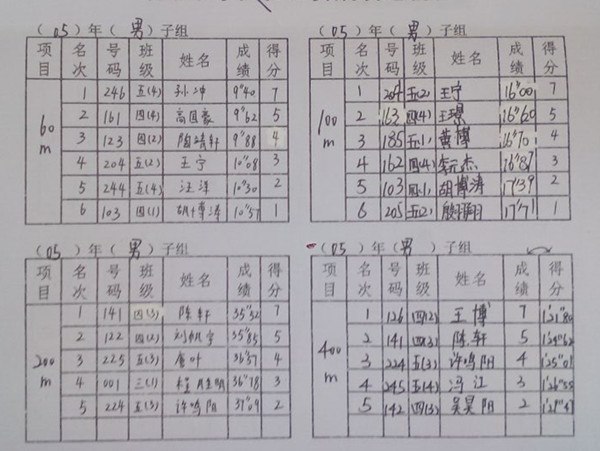 (05)年(男)子组
项目 名次 号码 班级 姓名 成绩 得分
60m
1 246 五(4) 孙冲 9"40 7
2 161 四(4) 高国豪 9"62 5
3 123 四(2) 陶靖轩 9"88 4
4 204 五(2) 王宁 10"08 3
5 244 五(4) 汪洋 10"30 2
6 103 四(1) 胡博涛 10"57 1
(05)年(男)子组
项目 名次 号码 班级 姓名 成绩 得分
100m
1 204 五(2) 王宁 16"00 7
2 163 四(4) 王璟 16"60 5
3 185 五(1) 黄博 16"70 4
4 162 四(4) 李元杰 16"87 3
5 103 四(1) 胡博涛 17"39 2
6 205 五(2) 殷翔翔 17"71 1
(05)年(男)子组
项目 名次 号码 班级 姓名 成绩 得分
200m
1 141 四(3) 陈轩 35"32 7
2 122 四(2) 刘帆宇 35"85 5
3 225 五(3) 詹叶 36"57 4
4 001 三(1) 36"78 3
5 224 五(3) 许鸣阳 39"09 2
(05)年(男)子组
项目 名次 号码 班级 姓名 成绩 得分
400m
1 126 四(2) 王博 7 1'21"80
2 141 四(3) 陈轩 5 1'24"62
3 224 五(3) 许鸣阳 4 1'25"01
4 245 五(4) 冯江 3 1'26"55
5 142 四(3) 吴昊阳 2 1'29"47